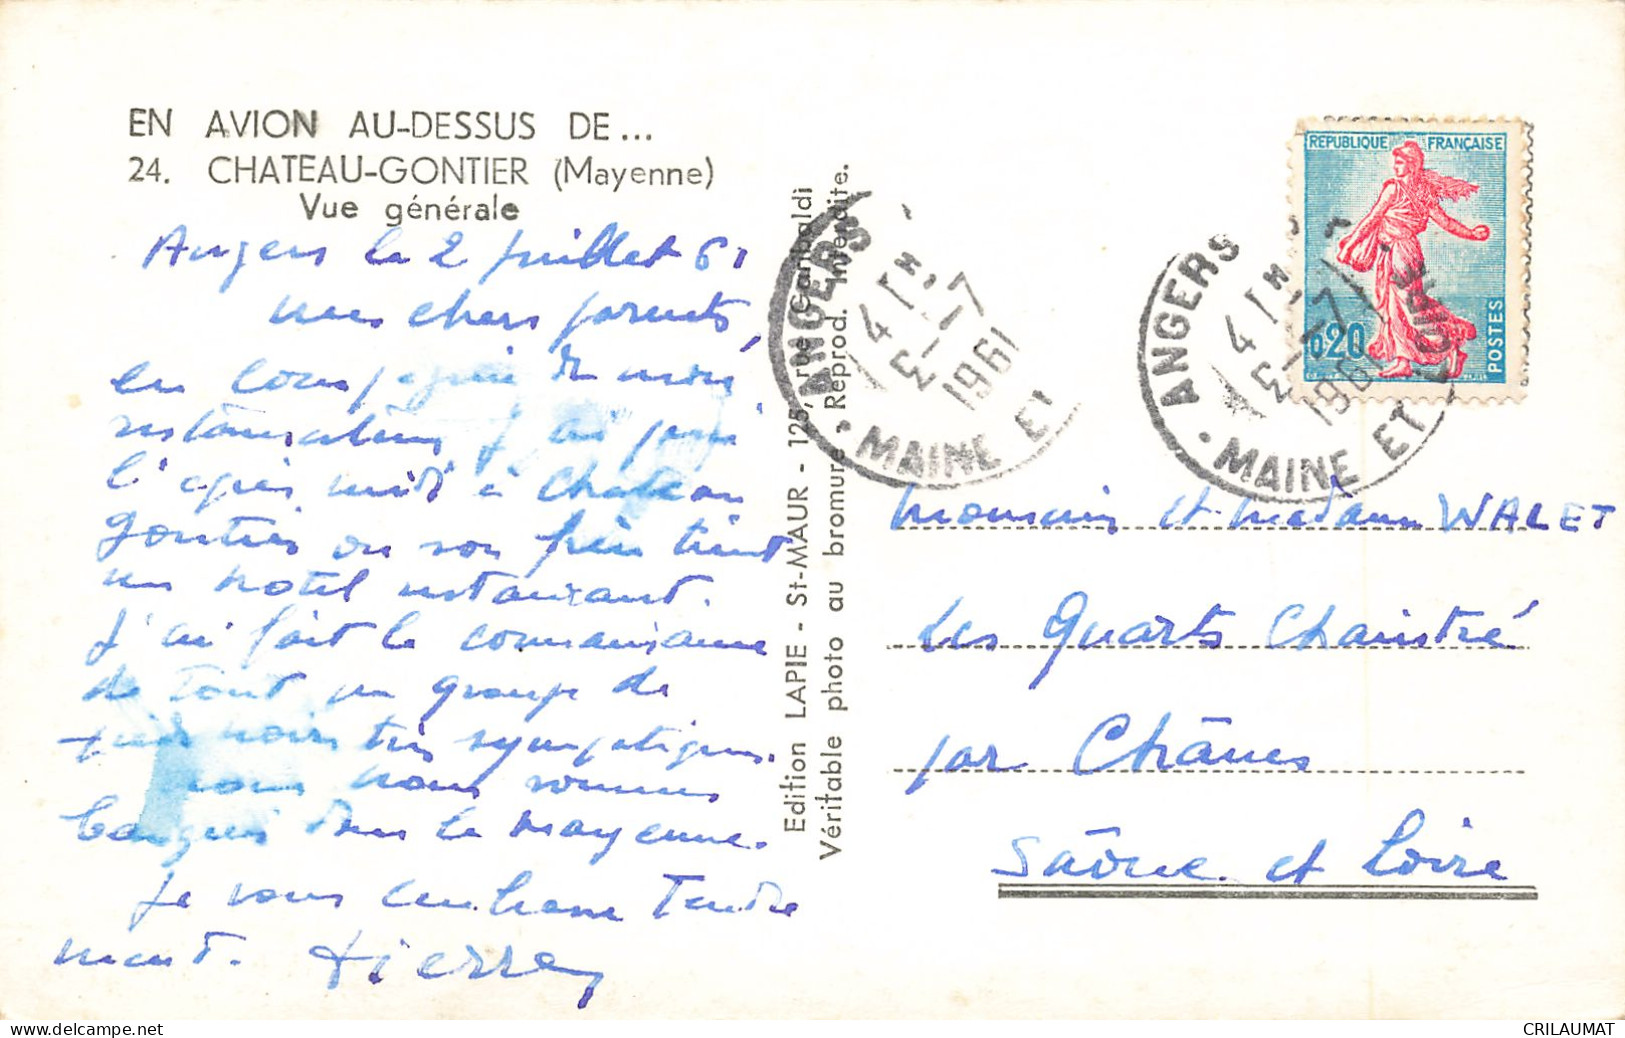 EN AVION AU-DESSUS DE...
24. CHATEAU-GONTIER (Mayenne)
Vue générale
Angers le 2 juillet 61
mes chers parents,
en compagnie de mon
restaurateur j'ai passé
l'après midi à Chateau
Gontier ou son frère tient
un hotel restaurant.
J'ai fait la connaissance
de tout un groupe de
pieds noirs très sympatiques.
nous nous sommes
baignés dans la Mayenne.
Je vous embrasse Tendre
ment. Pierre
Edition LAPIE - St-MAUR - 125, rue Garibaldi
Véritable photo au bromure - Reprod. Interdite.
ANGERS
4 1 H,
3 - 7
1961
MAINE ET
REPUBLIQUE FRANÇAISE
0,20
POSTES
ANGERS
4 1 H,
3 - 7
1961
MAINE ET LOIRE
Monsieur et Madame WALET
Les Quarts Chaintré
par Chânes
Saône et Loire
CRILAUMAT